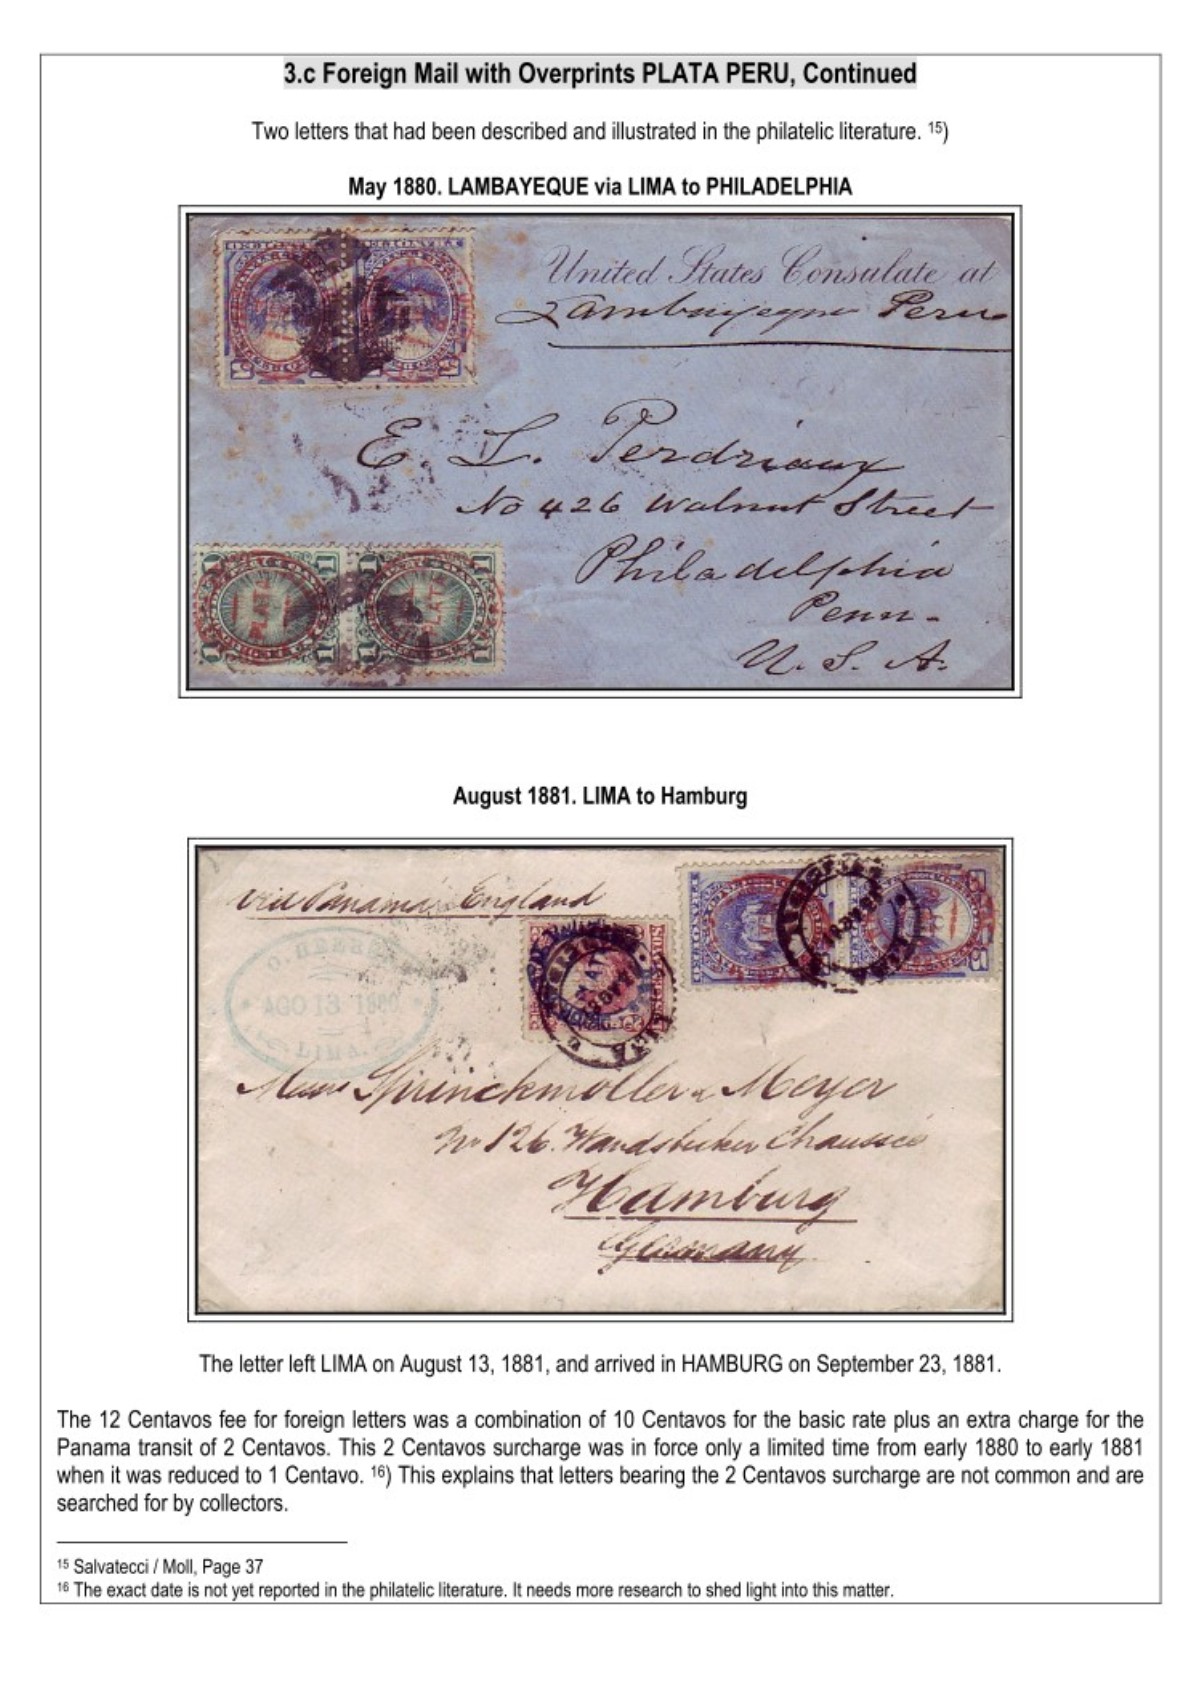 3.c Foreign Mail with Overprints PLATA PERU, Continued
Two letters that had been described and illustrated in the philatelic literature. ¹⁵)
May 1880. LAMBAYEQUE via LIMA to PHILADELPHIA
United States Consulate at
Lambayeque Peru
E. L. Perdriaux
No 426 Walnut Street
Philadelphia
Penn-
U. S. A.
PLATA
PLATA
1 1 1 1
August 1881. LIMA to Hamburg
via Panama England
AGO 13 1880
LIMA.
LIMA
Sprinckmoller & Meyer
No 126. Wandsbecker Chaussée
Hamburg
Germany
The letter left LIMA on August 13, 1881, and arrived in HAMBURG on September 23, 1881.
The 12 Centavos fee for foreign letters was a combination of 10 Centavos for the basic rate plus an extra charge for the
Panama transit of 2 Centavos. This 2 Centavos surcharge was in force only a limited time from early 1880 to early 1881
when it was reduced to 1 Centavo. ¹⁶) This explains that letters bearing the 2 Centavos surcharge are not common and are
searched for by collectors.
¹⁵ Salvatecci / Moll, Page 37
¹⁶ The exact date is not yet reported in the philatelic literature. It needs more research to shed light into this matter.